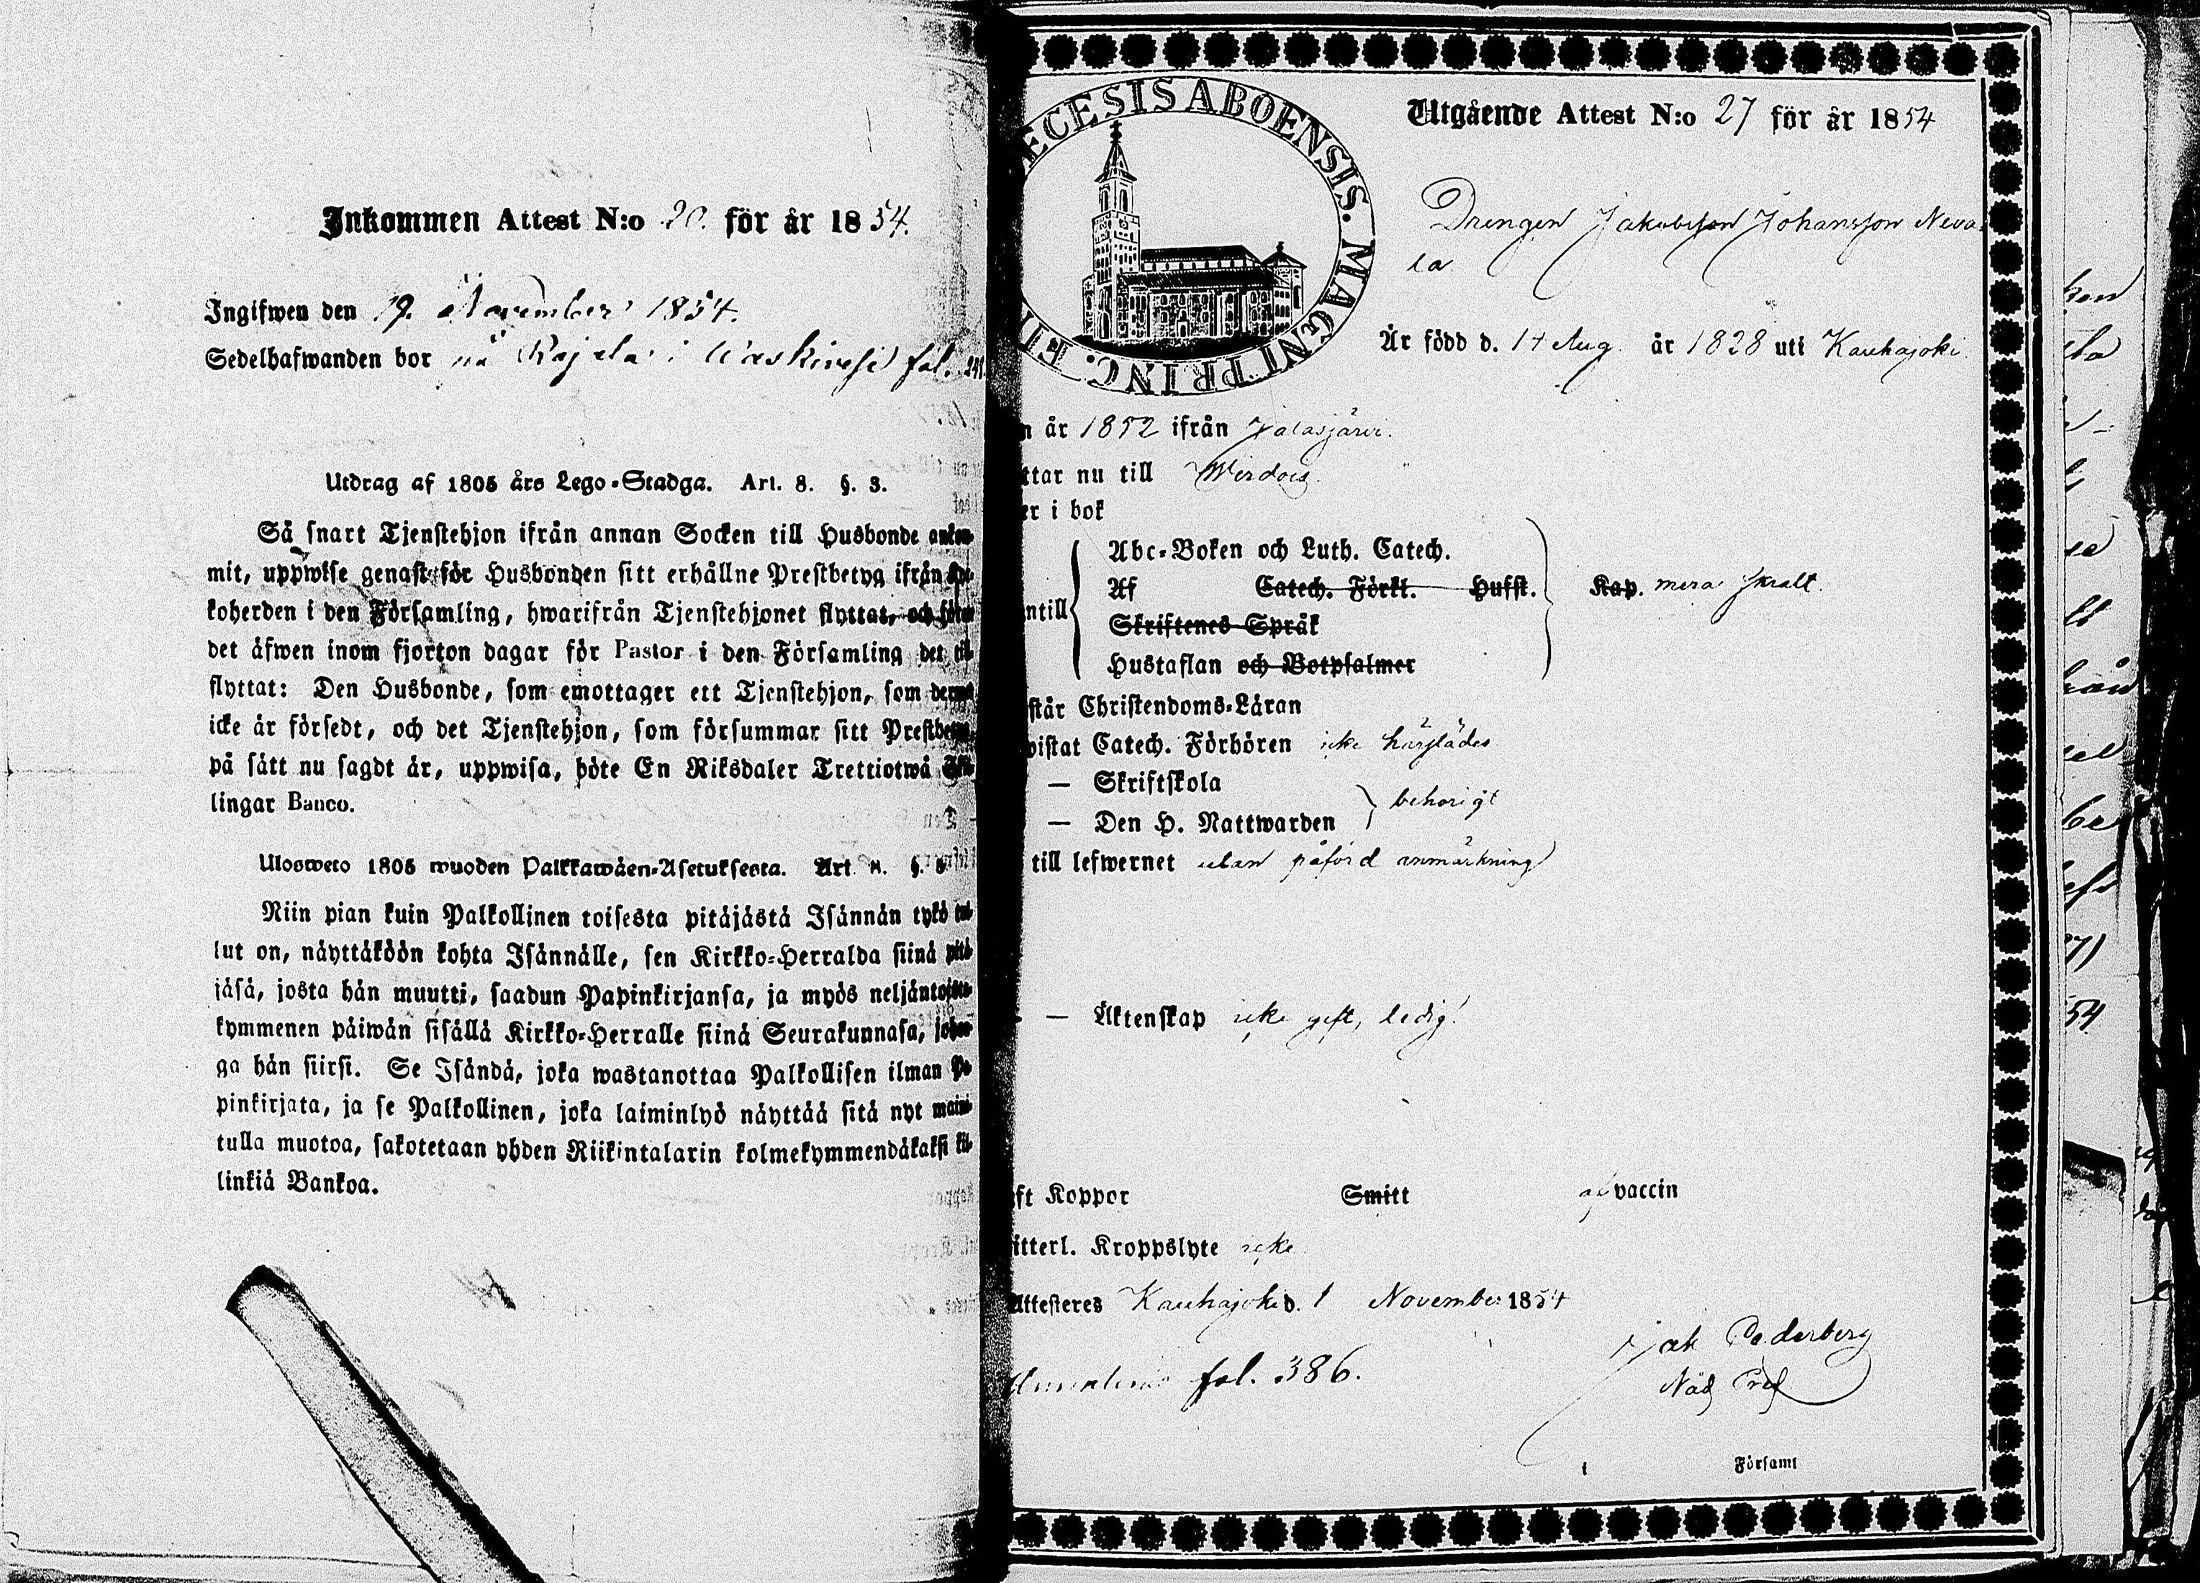 Inkommen Attest N:o 20. för år 1854.
Ingifwen den 19. November 1854.
Sedelhafwanden bor på Rajala i Waskivesi fol. 241.
Utdrag af 1805 års Lego-Stadga. Art. 8. §. 3.
Så snart Tjenstehjon ifrån annan Socken till Husbonde ankom-
mit, uppwise genast för Husbonden sitt erhållne Prestbetyg ifrån Kyr-
koherden i den Församling, hwarifrån Tjenstehjonet flyttat, och före
det äfwen inom fjorton dagar för Pastor i den Församling det till-
flyttat: Den Husbonde, som emottager ett Tjenstehjon, som dermed
icke är försedt, och det Tjenstehjon, som försummar sitt Prestbetyg,
på sätt nu sagdt är, uppwisa, böte En Riksdaler Trettiotwå Skil-
lingar Banco.
Ulosweto 1805 wuoden Palkkawäen-Asetuksesta. Art 8. §. 3
Niin pian kuin Palkollinen toisesta pitäjästä Isännän tykö tul-
lut on, näyttäköön kohta Isännälle, sen Kirkko-Herralda siinä pitä-
jäsä, josta hän muutti, saadun Papinkirjansa, ja myös neljäntoista-
kymmenen päiwän sisällä Kirkko-Herralle siinä Seurakunnasa, johon-
ga hän siirsi. Se Isändä, joka wastanottaa Palkollisen ilman Pa-
pinkirjata, ja se Palkollinen, joka laiminlyö näyttää sitä nyt maini-
tulla muotoa, sakotetaan yhden Riikintalarin kolmekymmendäkaksi kil-
linkiä Bankoa.
ECESIS ABOENSIS. MAGNI PRINC. FI
Utgående Attest N:o 27 för år 1854
Drengen Jakobsson Johansson Neva-
la
Är född d. 14 Aug. år 1828 uti Kauhajoki
n år 1852 ifrån Jalasjärvi.
ttar nu till Wirdois.
er i bok
Abc-Boken och Luth. Catech.
Af Catech. Förkl. Husst. Kap. mera svalt.
ntill
Skriftenes Språk
Hustaflan och Botpsalmer
står Christendoms-Läran
vistat Catech. Förhören icke
— Skriftskola
behörigt
— Den H. Nattwarden
till lefwernet utan påförd anmärkning
— Äktenskap icke gift, ledig.
ft Koppor Smitt af vaccin
itterl. Kroppslyte icke
Attesteres Kauhajoki d. 1 November 1854
Jak Cederberg
fol. 386.
Församl